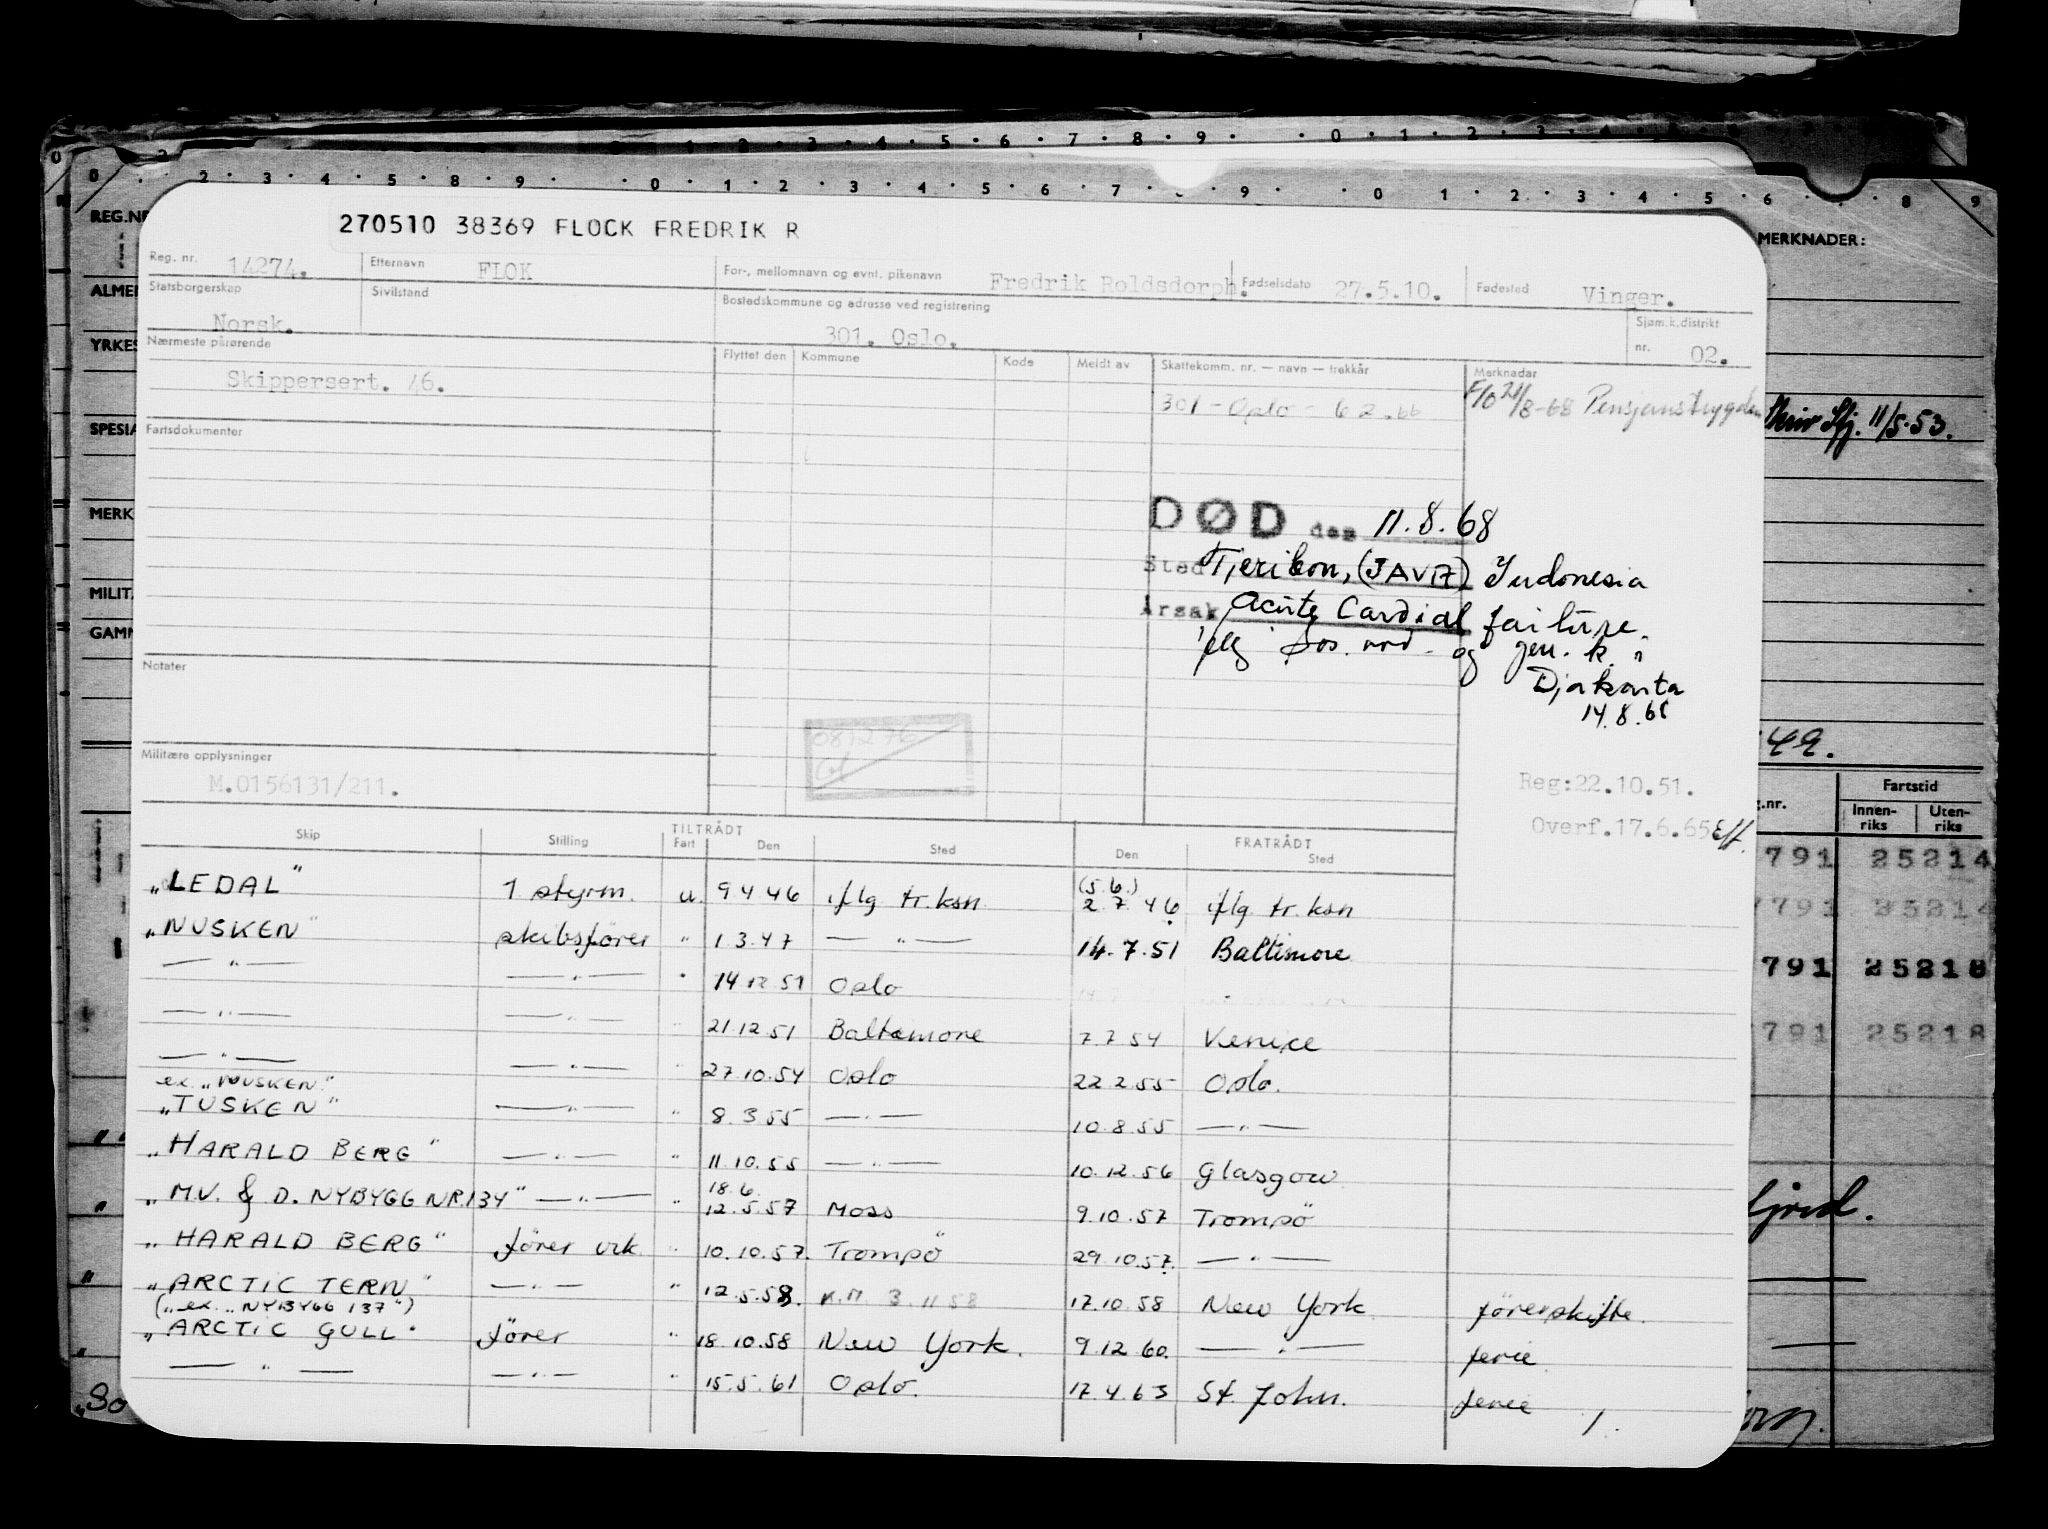 270510 38369 FLOCK FREDRIK R
Reg. nr. 14274. Etternavn FLOK For-, mellomnavn og evnt. pikenavn Fredrik Roldsdorph. Fødselsdato 27.5.10. Fødested Vinger.
Statsborgerskap Norsk. Sivilstand Bostedskommune og adresse ved registrering 301. Oslo. Sjøm.k.distrikt nr. 02.
Nærmeste pårørende Flyttet den Kommune Kode Meldt av Skattekomm. nr. — navn — trekkår Merknader
Skippersert. 46. 301 - Oslo - 62.66 8-68 Pensjonstrygden
Fartsdokumenter
DØD den 11.8.68
Sted Tjeribon, (JAVA) Indonesia
Årsak Acute Cardial failure.
iflg sos. nød. og gen. k. i
Djakarta
14.8.68
Notater
081276
Militære opplysninger
M.0156131/211.
Reg:22.10.51.
Overf.17.6.65 Eff.
Skip Stilling TILTRÅDT Fart Den Sted FRATRÅDT Den Sted
"LEDAL" 1 styrm. u. 9 4 46 iflg tr.ksn (5.6.) 2.7.46 iflg tr. ksn
"NUSKEN" skibsfører " 1 3.47 — " — 14.7.51 Baltimore
— " — — " — " 14 12 51 Oslo
— " — — " — " 21.12.51 Baltimore 7.7 54 Venice
— " — — " — " 27.10.54 Oslo 22 2 55 Oslo.
ex. "NUSKEN"
"TUSKEN" — " — " 8. 3 55 — " — 10.8.55 — " —
"HARALD BERG" — " — " 11.10.55 — " — 10.12.56 Glasgow
"M.V. & D. NYBYGG NR.134" — " — " 18.6. 12.5.57 Moss 9.10.57 Tromsö
"HARALD BERG" fører vik. " 10.10.57. Tromsö 29.10.57. — " —
"ARCTIC TERN" — " — " 12.5.58. K.M. 3.11 58 17.10.58 New York. førerskifte.
("ex. "NYBYGG 137")
"ARCTIC GULL" fører " 18.10.58 New York. 9.12 60. — " — ferie.
— " — — " — " 15.5.61 Oslo. 17.4.63 St. John. ferie
REG.NR
ALMEN
YRKES
SPESIA
MERK
MILIT
GAMM
MERKNADER:
Skriv Sfj. 11/5.53.
49.
Fartstid
g.nr. Innen-riks Uten-riks
791 25214
7791 25214
791 25218
791 25218